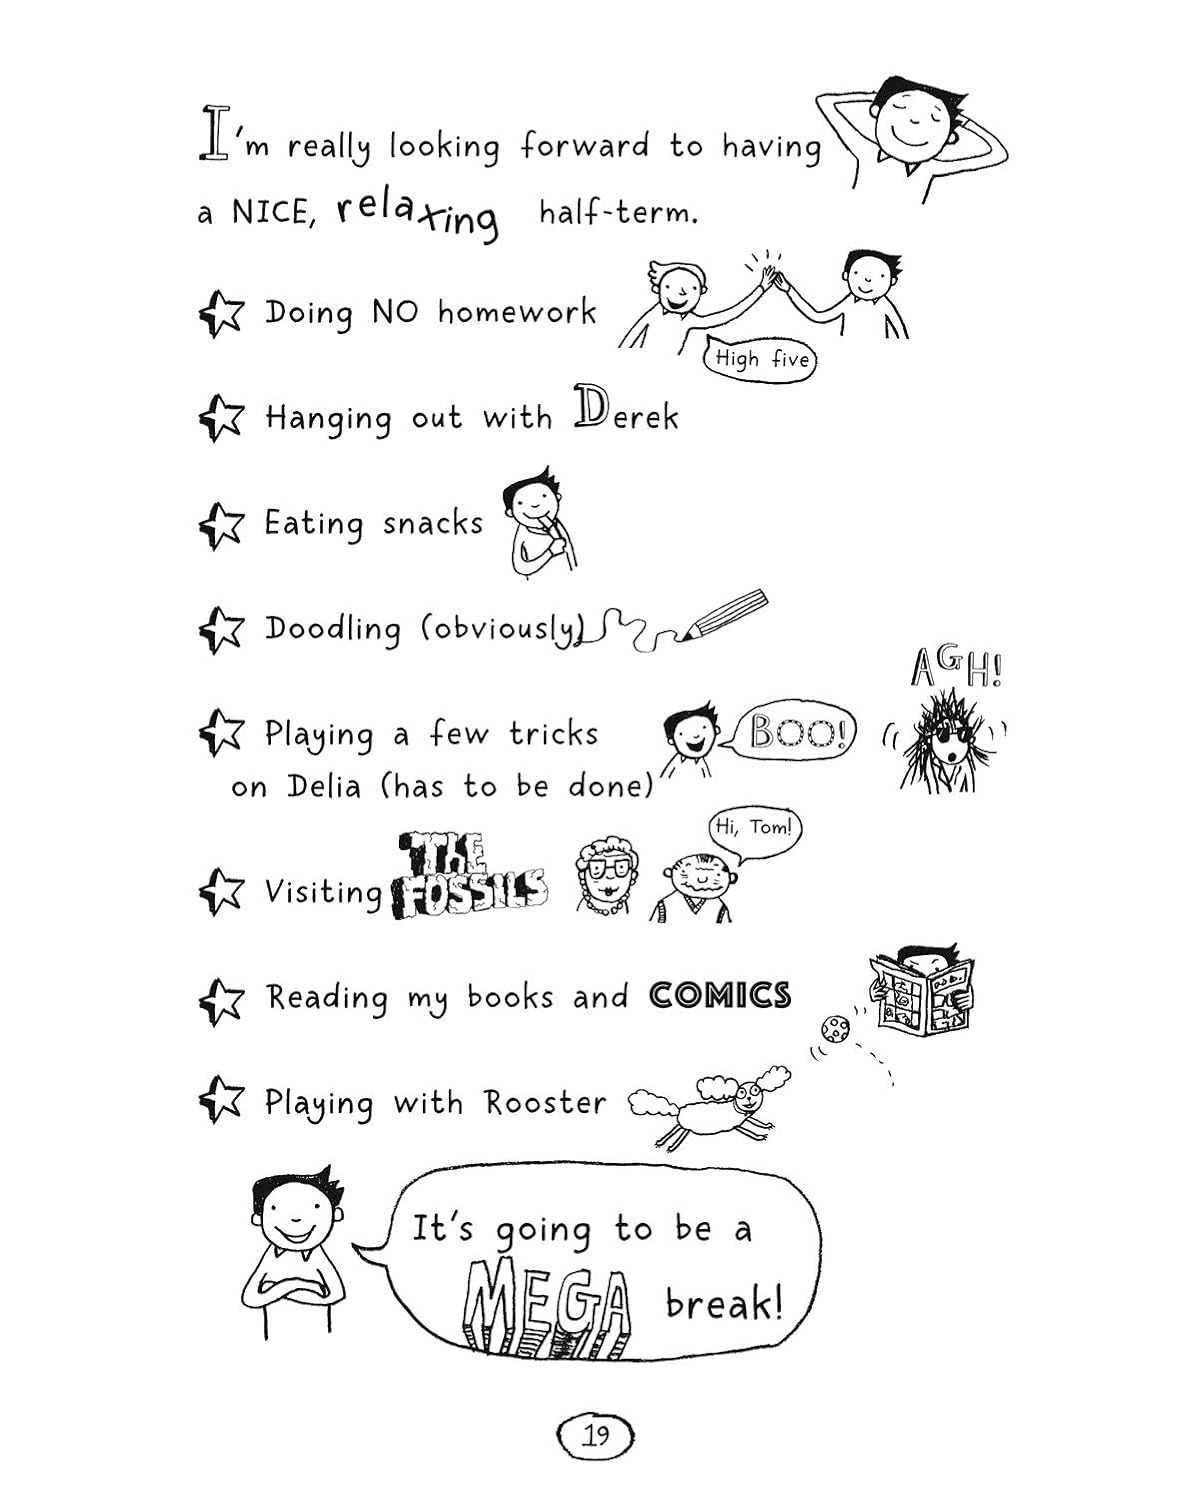 I'm really looking forward to having
a NICE, relaxing half-term.
Doing NO homework
High five
Hanging out with Derek
Eating snacks
Doodling (obviously)
AGH!
Playing a few tricks
BOO!
on Delia (has to be done)
Hi, Tom!
Visiting THE FOSSILS
Reading my books and COMICS
Playing with Rooster
It's going to be a
MEGA break!
19